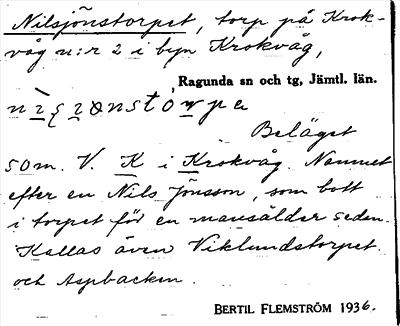 Nilsjönstorpet, torp på Krok-
våg n:r 2 i byn Krokvåg,
Ragunda sn och tg, Jämtl. län.
Beläget
50 m. V. K i Krokvåg. Namnet
efter en Nils Jönsson, som bott
i torpet för en mansålder sedan.
Kallas även Viklundstorpet
och Aspbacken.
BERTIL FLEMSTRÖM 1936.